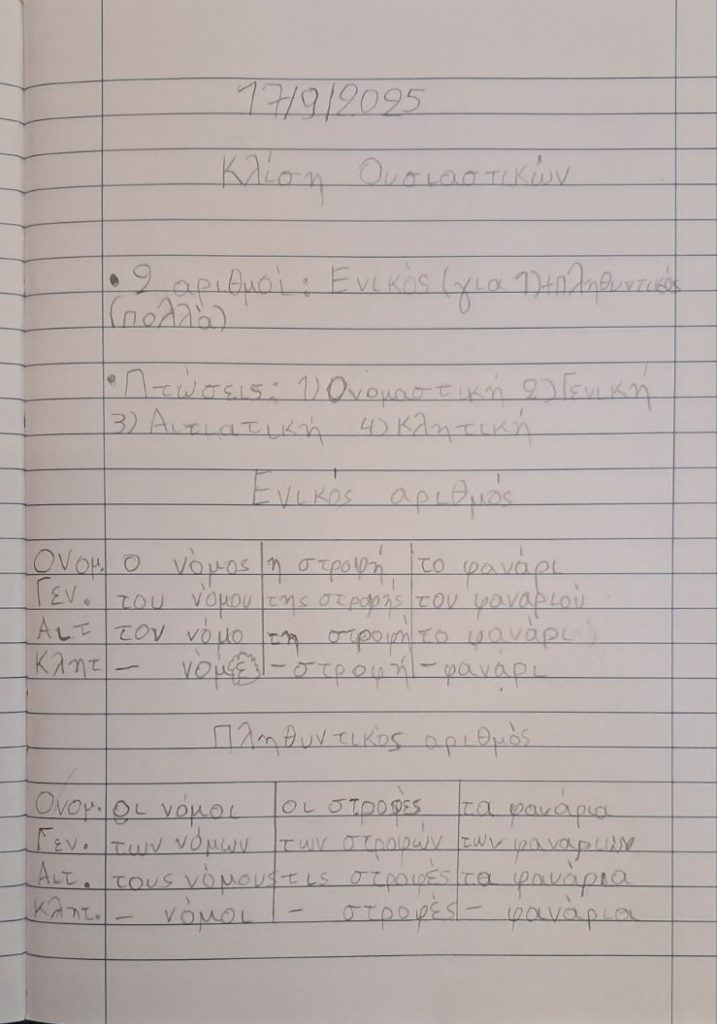 17/9/2025
Κλίση Ουσιαστικών
• 2 αριθμοί: Ενικός (για 1)+Πληθυντικός
(πολλά)
• Πτώσεις: 1) Ονομαστική 2) Γενική
3) Αιτιατική 4) Κλητική
Ενικός αριθμός
Ονομ. ο νόμος η στροφή το φανάρι
Γεν. του νόμου της στροφής του φαναριού
Αιτ τον νόμο τη στροφή το φανάρι
Κλητ — νόμε – στροφή – φανάρι
Πληθυντικός αριθμός
Ονομ. οι νόμοι οι στροφές τα φανάρια
Γεν. των νόμων των στροφών των φαναριών
Αιτ. τους νόμους τις στροφές τα φανάρια
Κλητ. – νόμοι – στροφές – φανάρια